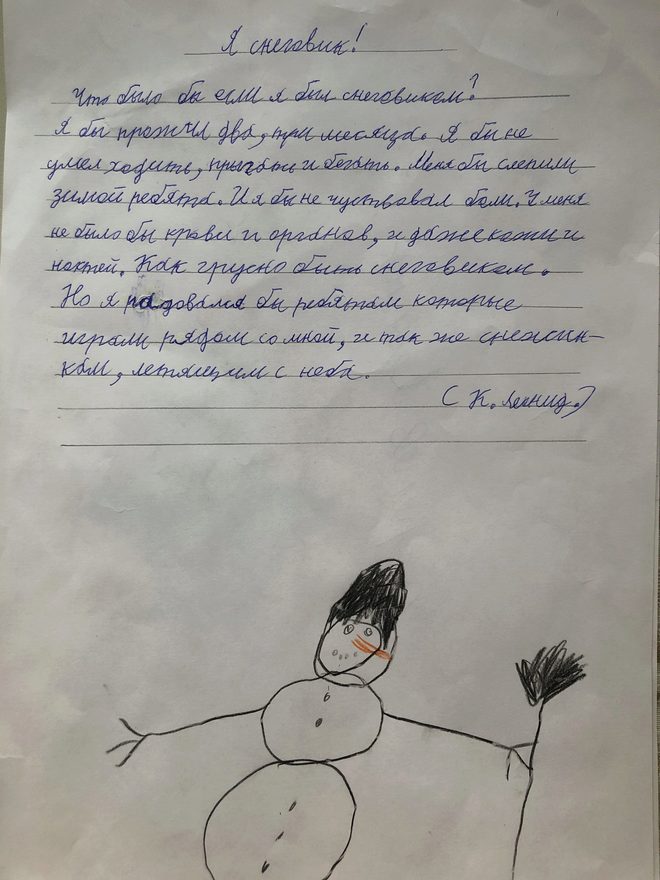 Я снеговик!
Что было бы если я был снеговиком?
Я бы прожил два, три месяца. Я бы не
умел ходить, прыгать и бегать. Меня бы слепили
зимой ребята. И я бы не чуствовал боли. У меня
не было бы крови и органов, и даже кожи и
ногтей. Как грусно быть снеговиком.
Но я радовался бы ребятам которые
играли рядом со мной, и так же снежин-
кам, летящим с неба.
(К. Леонид.)